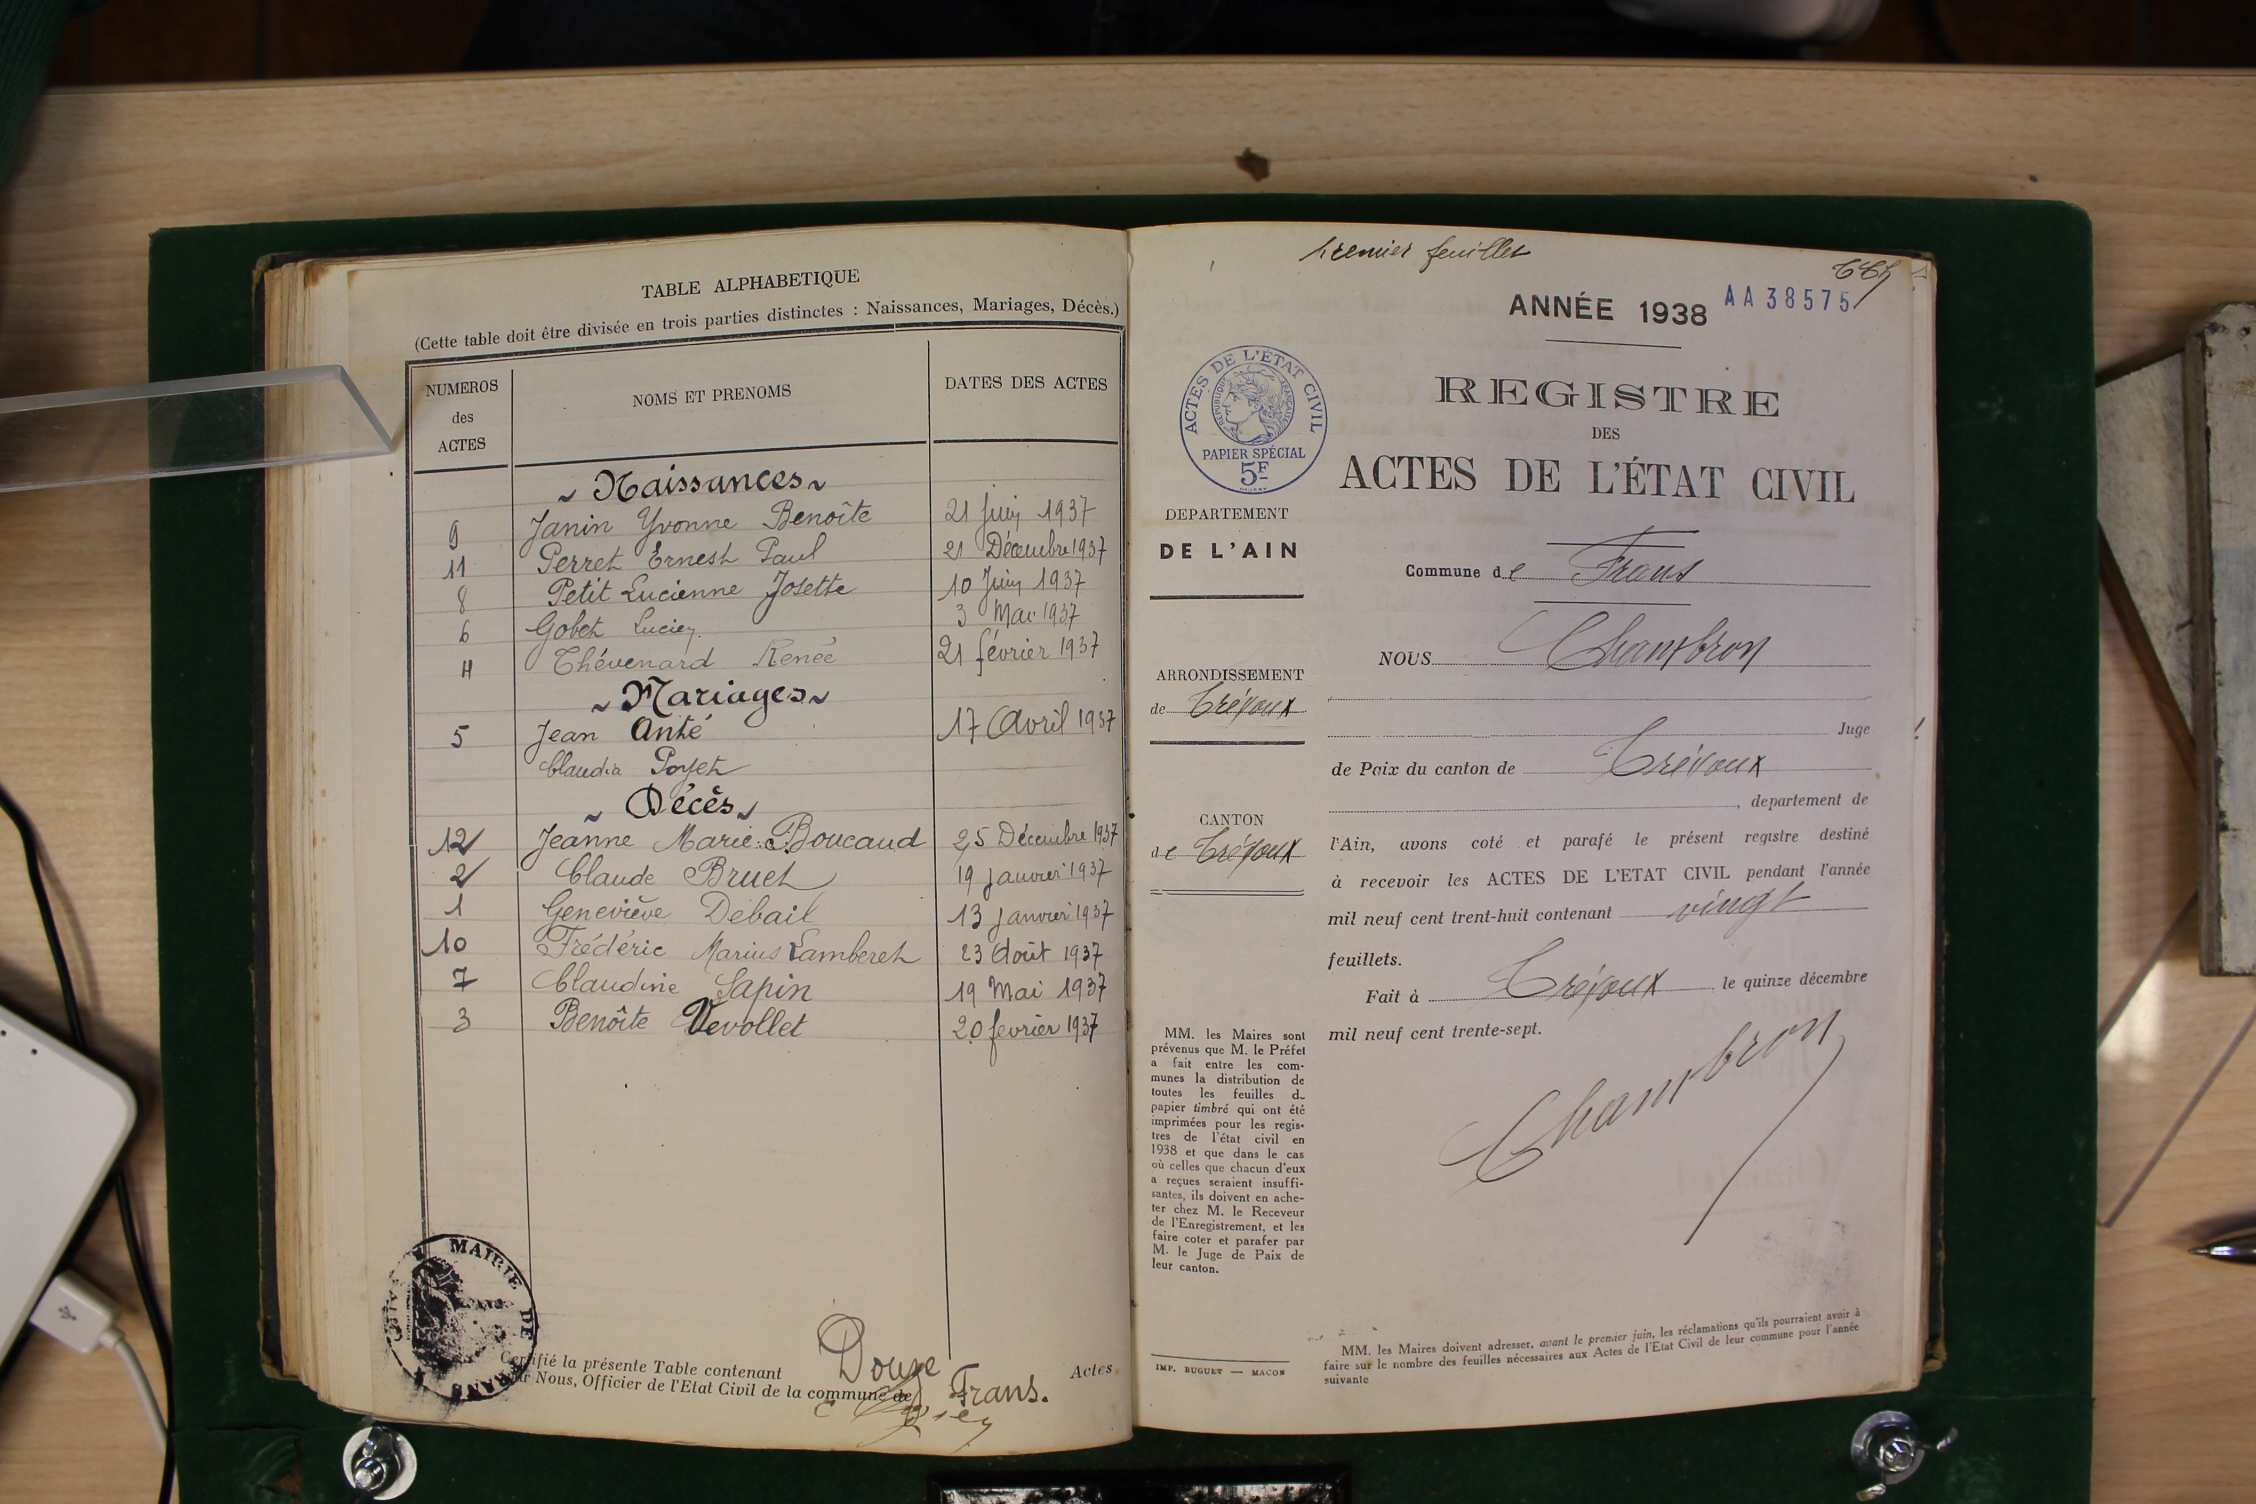 TABLE ALPHABETIQUE
(Cette table doit être divisée en trois parties distinctes : Naissances, Mariages, Décès.)
NUMEROS des ACTES
NOMS ET PRENOMS
DATES DES ACTES
~ Naissances ~
9 Janin Yvonne Benoîte 21 Juin 1937
11 Perret Ernest Paul 21 Décembre 1937
8 Petit Lucienne Josette 10 Juin 1937
6 Gobet Lucien 3 Mai 1937
4 Thévenard Renée 21 février 1937
~ Mariages ~
5 Jean Anté 17 Avril 1937
Claudia Poyet
~ Décès ~
12 Jeanne Marie Boucaud 25 Décembre 1937
2 Claude Bruet 19 janvier 1937
1 Geneviève Debail 13 janvier 1937
10 Frédéric Marius Lamberet 23 Août 1937
7 Claudine Sapin 19 Mai 1937
3 Benoîte Devollet 20 fevrier 1937
MAIRIE DE FRANS
Certifié la présente Table contenant Douze Actes
Nous, Officier de l'Etat Civil de la commune de Frans.
Premier feuillet
AA 38575
ANNÉE 1938
REGISTRE
DES
ACTES DE L'ÉTAT CIVIL
ACTES DE L'ÉTAT CIVIL
RÉPUBLIQUE FRANÇAISE
PAPIER SPÉCIAL
5F
DEPARTEMENT
DE L'AIN
Commune de Frans
NOUS Chambron
ARRONDISSEMENT
de Trévoux
Juge
de Paix du canton de Trévoux
, departement de
CANTON
de Trévoux
l'Ain, avons coté et parafé le présent registre destiné
à recevoir les ACTES DE L'ETAT CIVIL pendant l'année
mil neuf cent trent-huit contenant vingt
feuillets.
Fait à Trévoux le quinze décembre
mil neuf cent trente-sept.
Chambron
MM. les Maires sont
prévenus que M. le Préfet
a fait entre les com-
munes la distribution de
toutes les feuilles d
papier timbré qui ont été
imprimées pour les regis-
tres de l'état civil en
1938 et que dans le cas
où celles que chacun d'eux
a reçues seraient insuffi-
santes, ils doivent en ache-
ter chez M. le Receveur
de l'Enregistrement, et les
faire coter et parafer par
M. le Juge de Paix de
leur canton.
IMP. BUGUET — MACON
MM. les Maires doivent adresser, avant le premier juin, les réclamations qu'ils pourraient avoir à
faire sur le nombre des feuilles nécessaires aux Actes de l'Etat Civil de leur commune pour l'année
suivante